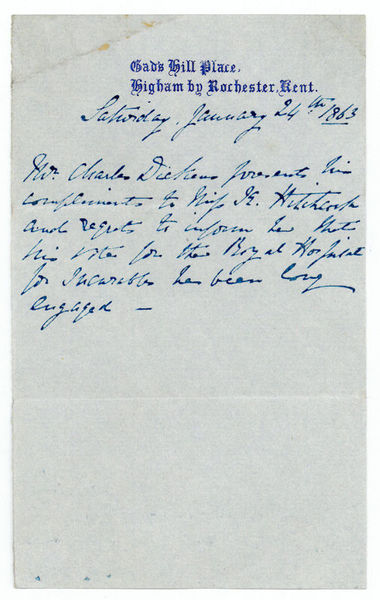 Gad's Hill Place,
Higham by Rochester, Kent.
Saturday, January 24th 1863
Mr. Charles Dickens presents his
compliments to Miss K. Hitchcock
and regrets to inform her that
his votes for the Royal Hospital
for Incurables has been long
engaged —